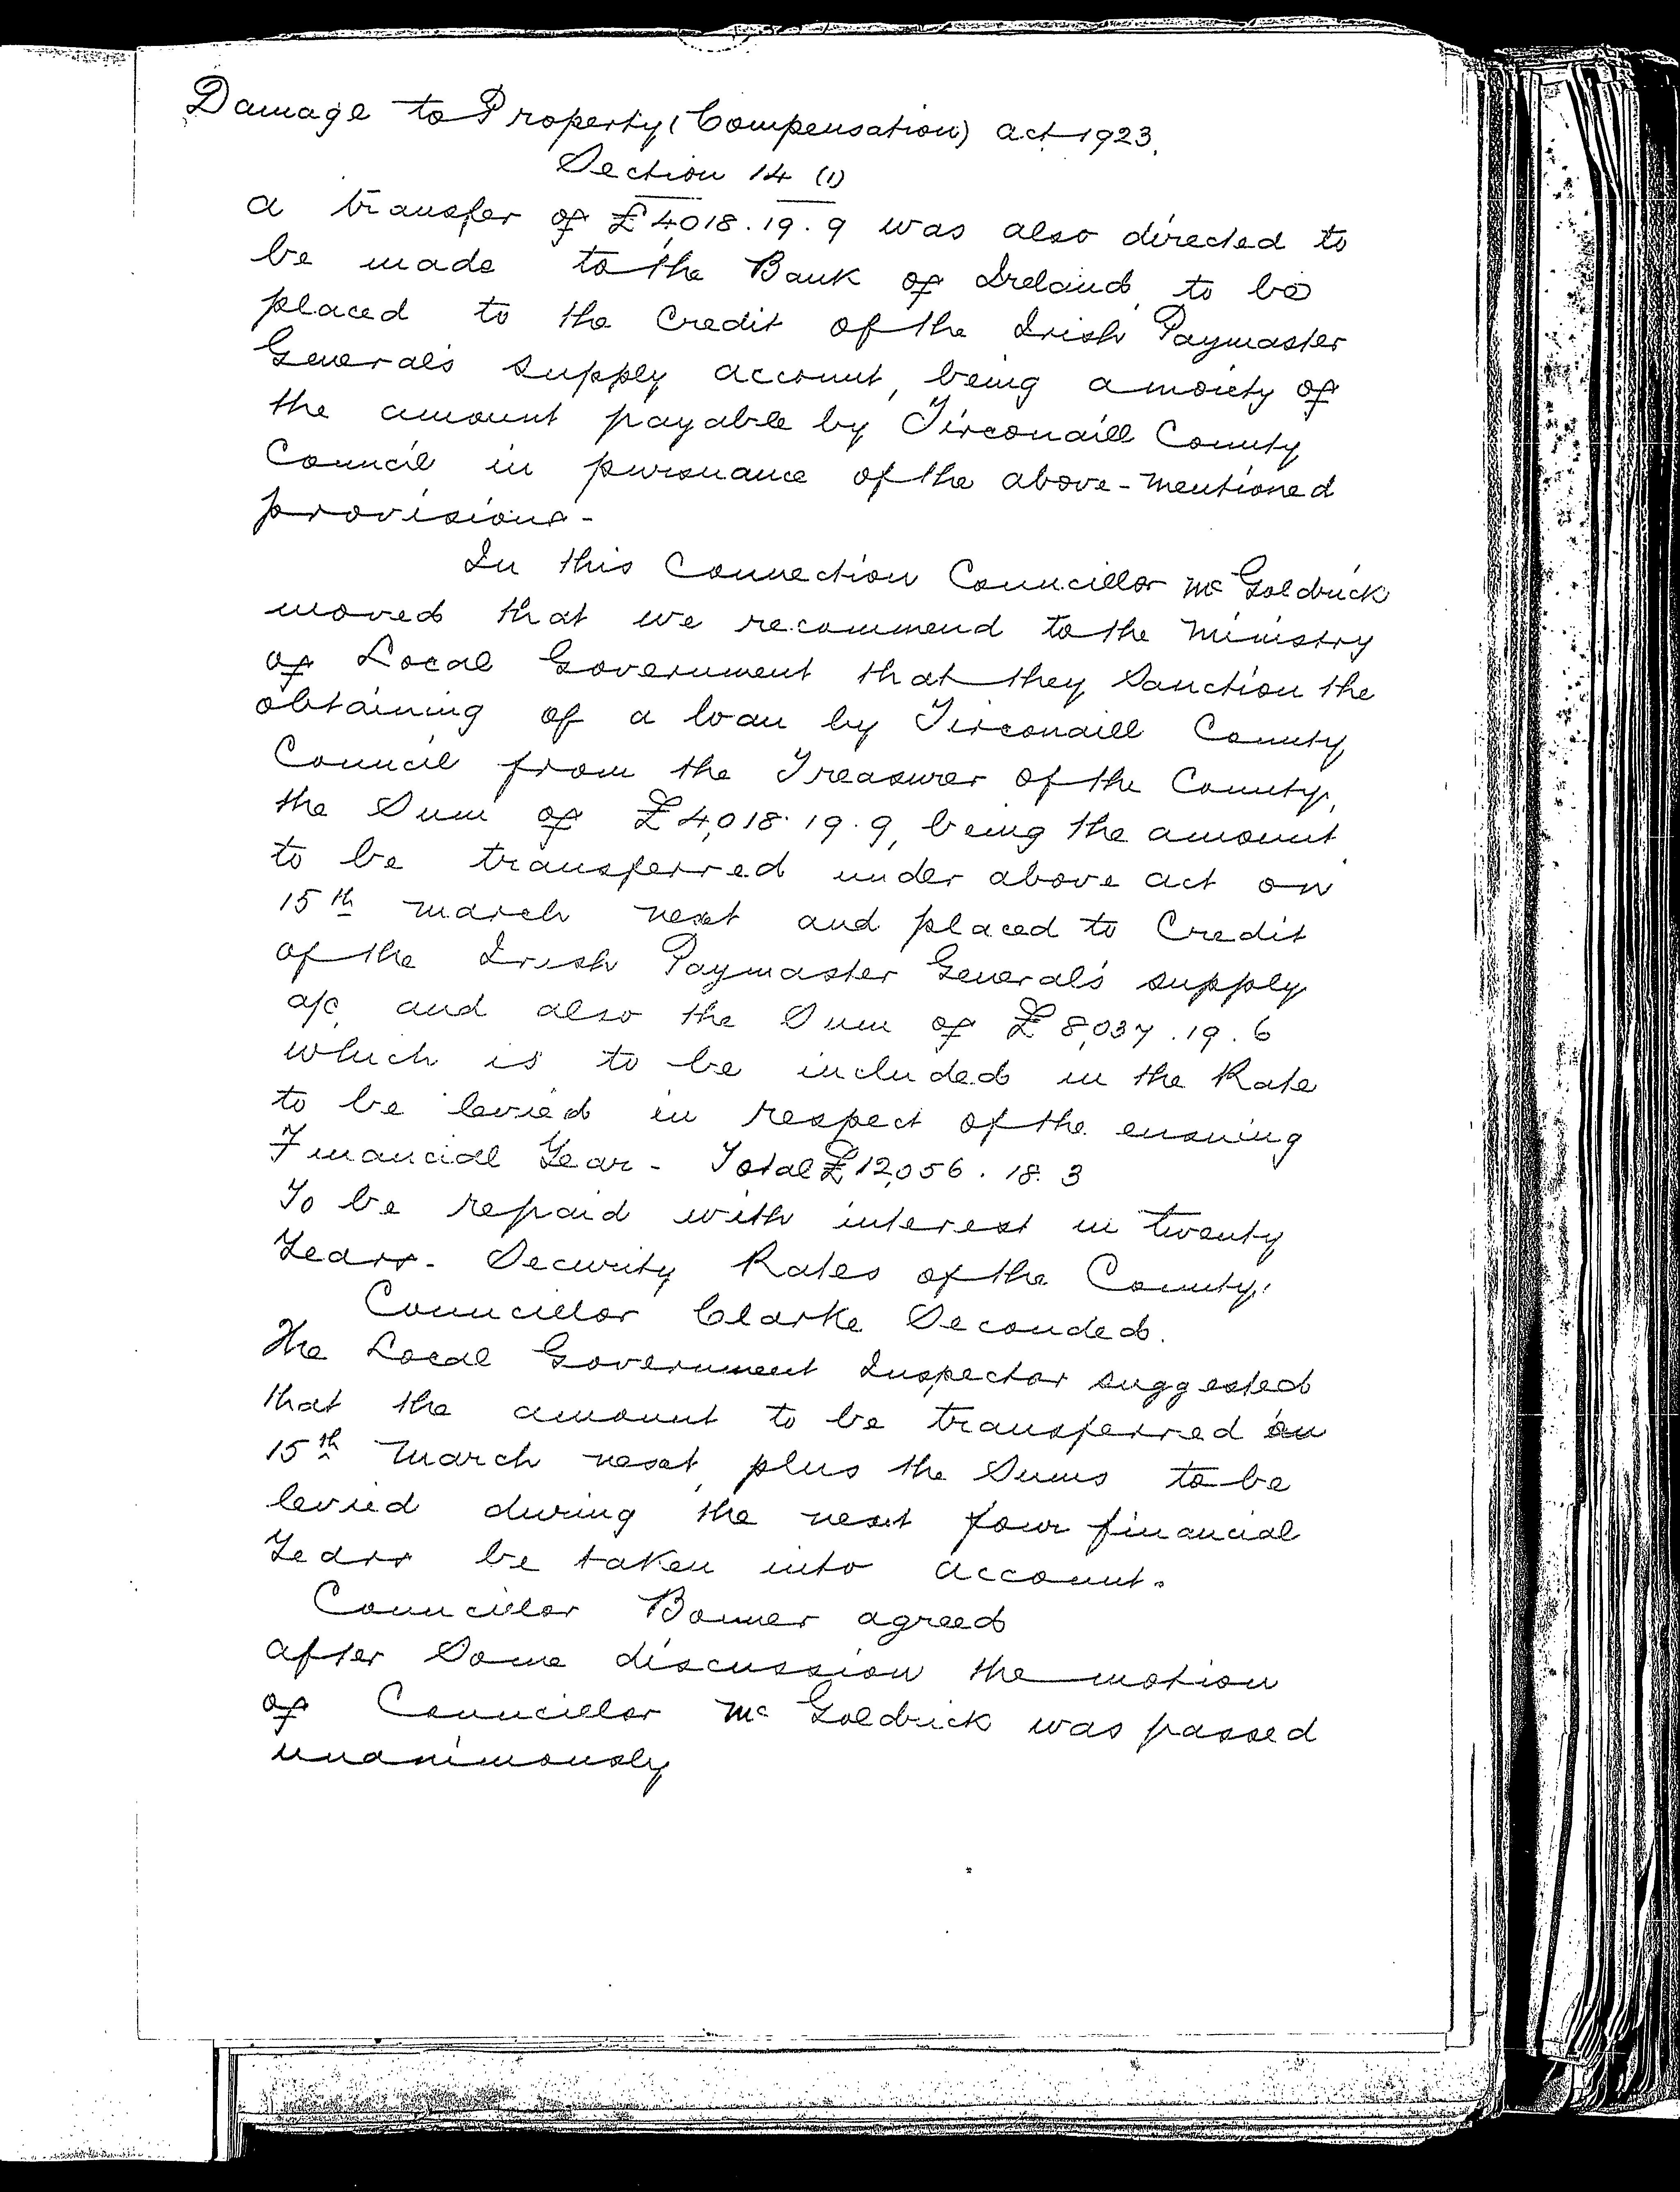 Damage to Property (Compensation) act 1923.
Section 14 (1)
a transfer of £4,018.19.9 was also directed to
be made to the Bank of Ireland, to be
placed to the Credit of the Irish Paymaster
General's supply account, being a moiety of
the amount payable by Tirconaill County
Council in pursuance of the above-mentioned
provisions-
In this Connection Councillor Mc Goldrick
moved that we recommend to the Ministry
of Local Government that they Sanction the
obtaining of a loan by Tirconaill County
Council from the Treasurer of the County,
the Sum of £4,018.19.9, being the amount
to be transferred under above act on
15th March next and placed to Credit
of the Irish Paymaster General's supply
a/c, and also the Sum of £8,037.19.6
which is to be included in the Rate
to be levied in respect of the ensuing
Financial Year- Total £12,056.18.3
To be repaid with interest in twenty
Years- Security Rates of the County.
Councillor Clarke Seconded.
The Local Government Inspector suggested
that the amount to be transferred on
15th March next, plus the Sums to be
levied during the next four financial
Years be taken into account.
Councillor Bonner agreed
after Some discussion the motion
of Councillor Mc Goldrick was passed
unanimously